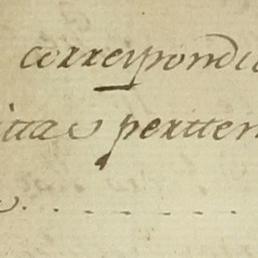 correspondi
ittas pertten